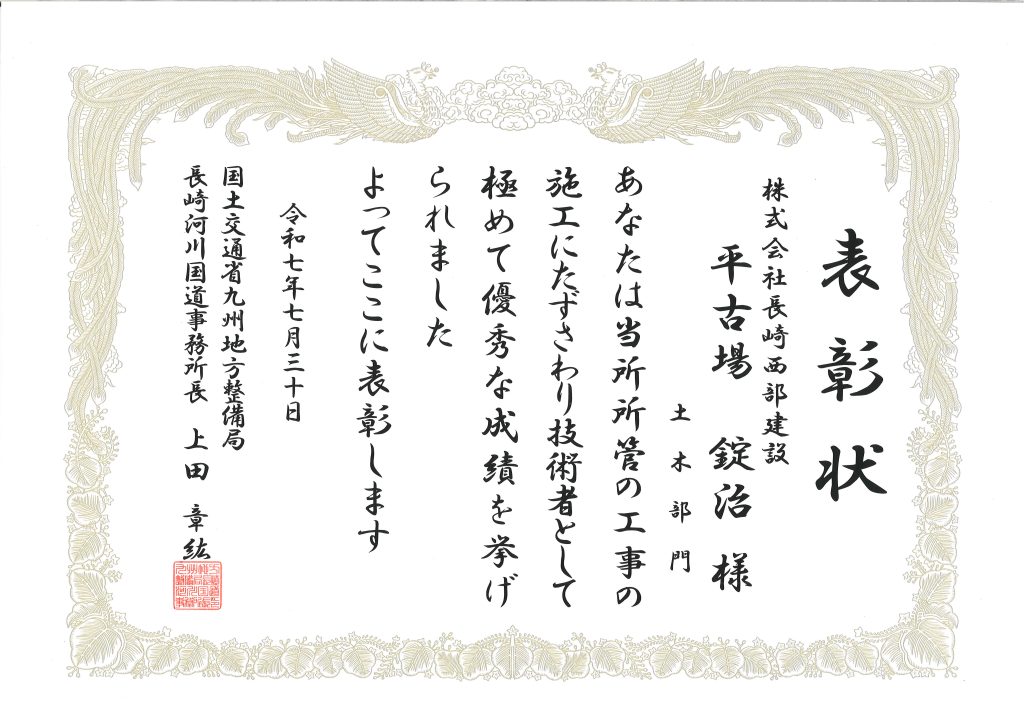 表彰状
株式会社長崎西部建設
平古場　錠治　様
土木部門
あなたは当所所管の工事の
施工にたずさわり技術者として
極めて優秀な成績を挙げ
られました
よってここに表彰します
令和七年七月三十日
国土交通省九州地方整備局
長崎河川国道事務所長　上田　章紘